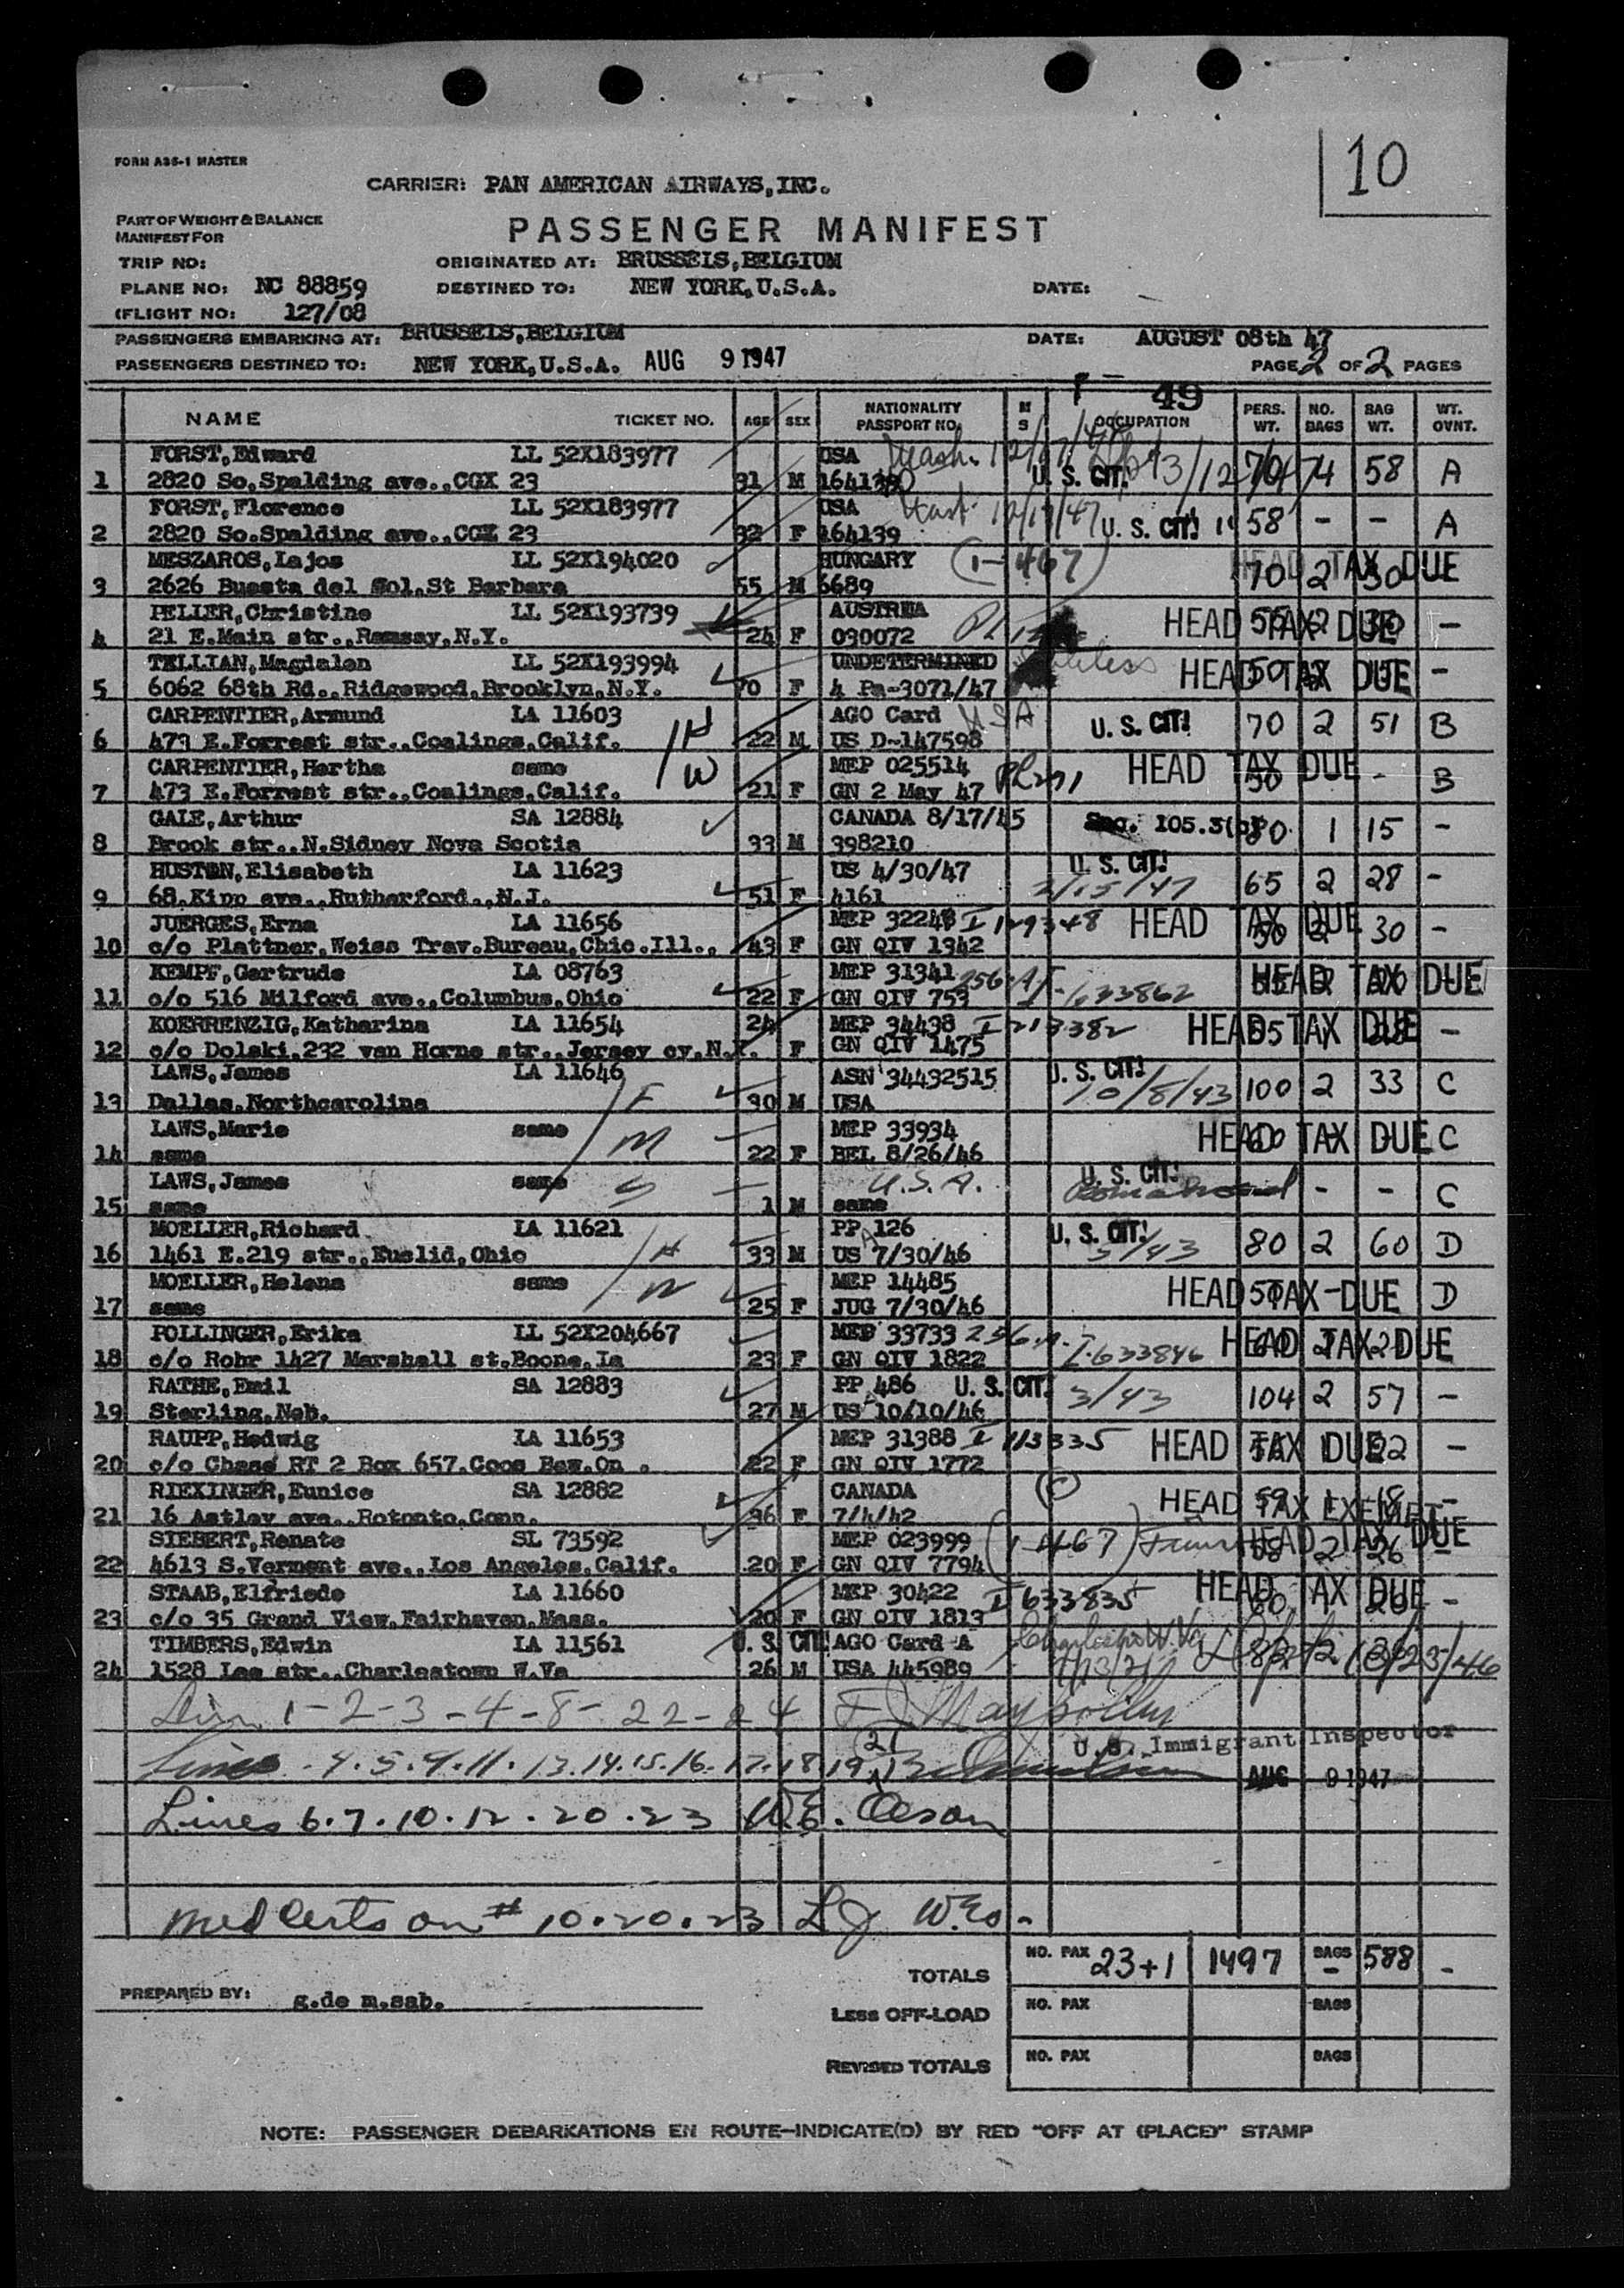 10
FORM A35-1 MASTER
CARRIER: PAN AMERICAN AIRWAYS, INC.
PART OF WEIGHT & BALANCE
MANIFEST FOR
PASSENGER MANIFEST
TRIP NO:
ORIGINATED AT: BRUSSELS, BELGIUM
PLANE NO: NC 88859
DESTINED TO: NEW YORK, U.S.A.
DATE:
(FLIGHT NO: 127/08
PASSENGERS EMBARKING AT: BRUSSELS, BELGIUM
DATE: AUGUST 08th 47
PASSENGERS DESTINED TO: NEW YORK, U.S.A. AUG 9 1947
PAGE 2 OF 2 PAGES
49
NAME TICKET NO. AGE SEX NATIONALITY PASSPORT NO. M S OCCUPATION PERS. WT. NO. BAGS BAG WT. WT. OVNT.
FORST, Edward LL 52X183977 USA
1 2820 So. Spalding ave.., CGX 23 31 M U. S. CIT. 70 4 58 A
FORST, Florence LL 52X183977 USA
2 2820 So. Spalding ave.., CGX 23 32 F 164139 U. S. CIT! 58 - - A
MESZAROS, Lajos LL 52X194020 HUNGARY (1-467) HEAD TAX DUE
3 2626 Buesta del Sol. St Barbara 55 M 6689 70 2 30
PELLER, Christine LL 52X193739 AUSTRIA
4 21 E. Main str.., Ramsay, N.Y. 24 F 030072 HEAD TAX DUE -
TELLIAN, Magdalen LL 52X193994 UNDETERMINED
5 6062 68th Rd., Ridgewood, Brooklyn, N.Y. 70 F 4 Pa-3071/47 HEAD TAX DUE -
CARPENTIER, Armund LA 11603 AGO Card USA
6 473 E. Forrest str.., Coalinga, Calif. H 22 M US D-147598 U. S. CIT! 70 2 51 B
CARPENTIER, Hertha same MEP 025514
7 473 E. Forrest str.., Coalinga, Calif. W 21 F GN 2 May 47 HEAD TAX DUE 50 - B
GALE, Arthur SA 12884 CANADA 8/17/45
8 Brook str.. N. Sidney Nova Scotia 33 M 398210 Sec. 105.3(b) 80 1 15 -
HUSTON, Elisabeth LA 11623 US 4/30/47 U. S. CIT!
9 68. Kipp ave.., Rutherford.., N.J. 51 F 4161 65 2 28 -
JUERGES, Erna LA 11656 MEP 32248
10 c/o Plattner, Weiss Trav. Bureau, Chic. Ill.., 43 F GN QIV 1342 HEAD TAX DUE 30 -
KEMPF, Gertrude LA 08763 MEP 31341
11 c/o 516 Milford ave.., Columbus, Ohio 22 F GN QIV 753 I-633862 HEAD TAX DUE
KOERRENZIG, Katharina LA 11654 24 MEP 34438 I 213382
12 c/o Dolski. 232 van Horne str.., Jersey cy. N.Y. F GN QIV 1475 HEAD TAX DUE -
LAWS, James LA 11646 ASN 34432515 U. S. CIT!
13 Dallas. Northcarolina F 30 M USA 10/8/43 100 2 33 C
LAWS, Marie same MEP 33934
14 same M 22 F BEL 8/26/46 HEAD TAX DUE C
LAWS, James same U.S.A. U. S. CIT!
15 same S 1 M same - - C
MOELLER, Richard LA 11621 PP A 126 U. S. CIT!
16 1461 E. 219 str.., Euclid, Ohio H 33 M US 7/30/46 80 2 60 D
MOELLER, Helena same MEP 14485
17 same W 25 F JUG 7/30/46 HEAD TAX DUE D
POLLINGER, Erika LL 52X204667 MEP 33733
18 c/o Rohr 1427 Marshall st. Boone, Ia 23 F GN QIV 1822 I-633846 HEAD TAX DUE
RATHE, Emil SA 12883 PP A 486 U. S. CIT.
19 Sterling, Neb. 27 M US 10/10/46 3/43 104 2 57 -
RAUPP, Hedwig LA 11653 MEP 31388 I 113335
20 c/o Chase RT 2 Box 657. Coos Baw. On . 22 F GN QIV 1772 HEAD TAX DUE -
RIEXINGER, Eunice SA 12882 CANADA (C)
21 16 Astley ave.. Rotonto, Conn. 36 F 7/4/42 HEAD TAX EXEMPT -
SIEBERT, Renate SL 73592 MEP 023999 (1-467)
22 4613 S. Vermont ave.., Los Angeles, Calif. 20 F GN QIV 7794 HEAD TAX DUE 2 26 -
STAAB, Elfriede LA 11660 MEP 30422 I 633835
23 c/o 35 Grand View, Fairhaven, Mass. 20 F GN QIV 1813 HEAD TAX DUE -
TIMBERS, Edwin LA 11561 U. S. CIT! AGO Card A
24 1528 Lee str.., Charlestown W. Va 26 M USA 445989
1-2-3-4-8-22-24
U.S. Immigrant Inspector
Lines 13.14.15.16.17.18.19. 21 AUG 9 1947
Lines 6.7.10.12.20.23 W.E. Oeson
Med Certs on # 10.20.23
TOTALS NO. PAX 23+1 1497 BAGS - 588 -
PREPARED BY: g.de m.sab.
LESS OFF-LOAD NO. PAX BAGS
REVISED TOTALS NO. PAX BAGS
NOTE: PASSENGER DEBARKATIONS EN ROUTE—INDICATE(D) BY RED "OFF AT (PLACE)" STAMP